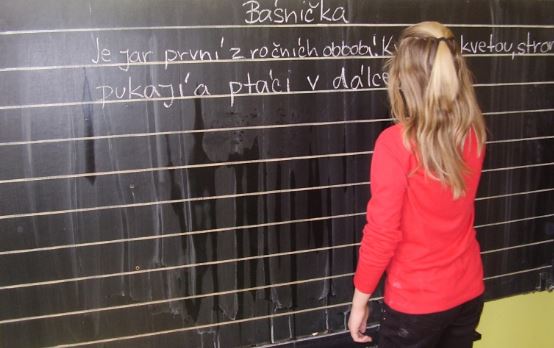 Básnička
Je jar první z ročních obbobí. kvetou, stro
pukají a ptáci v dálce